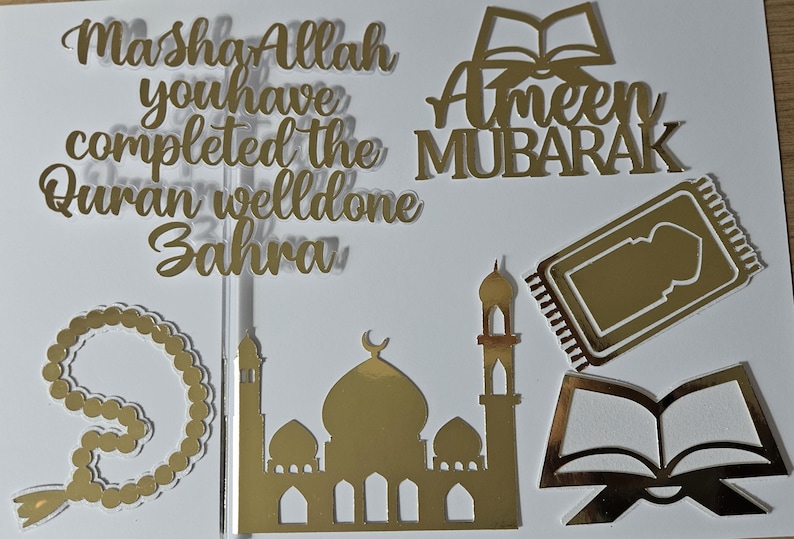 MaShaAllah
youhave
completed the
Quran welldone
Zahra
Ameen
MUBARAK